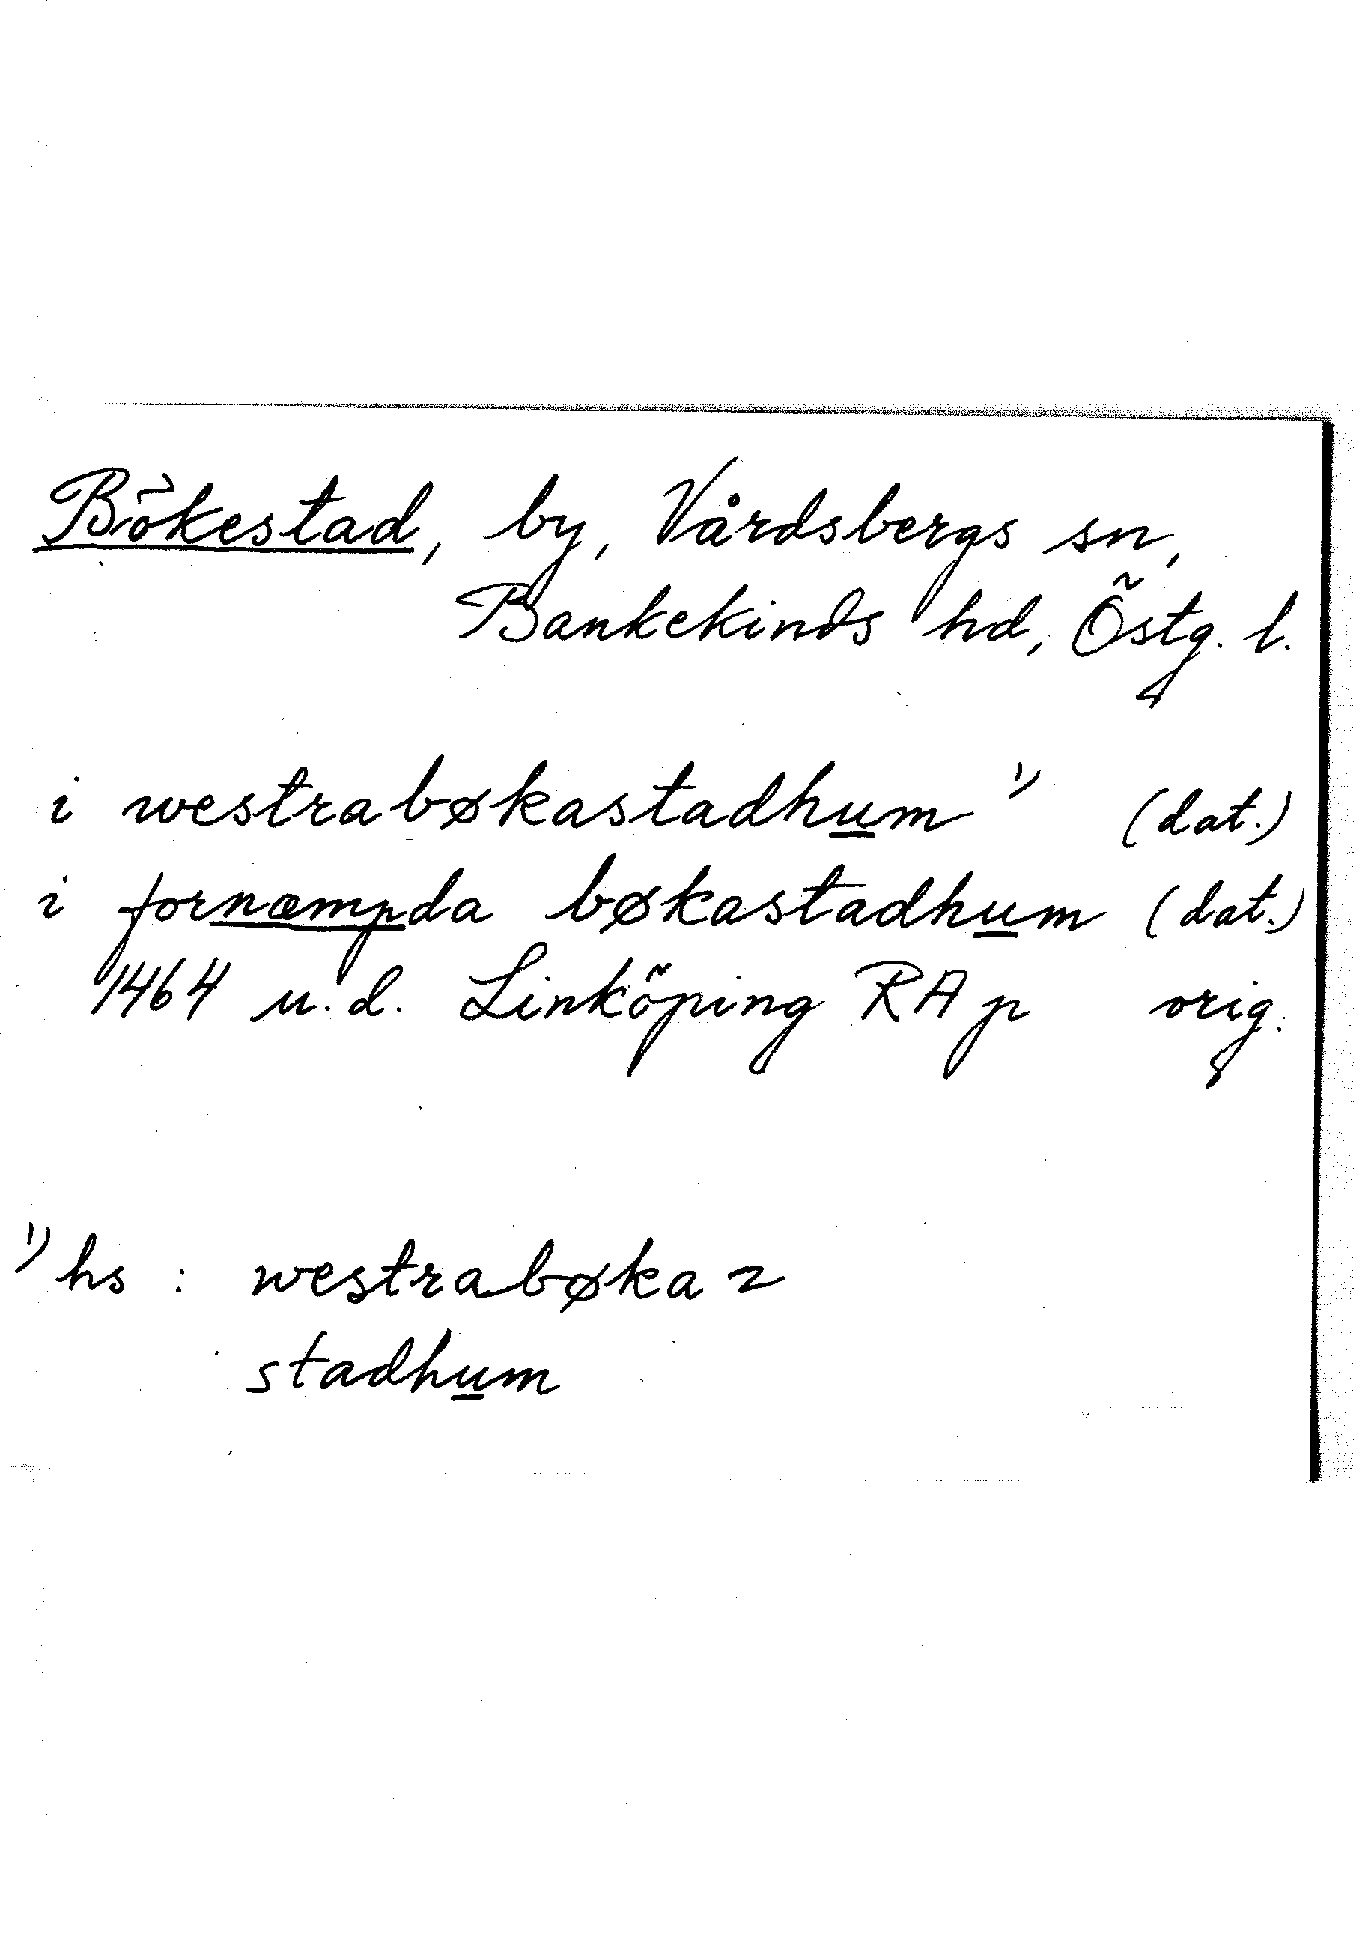 Bökestad, by, Vårdsbergs sn,
Bankekinds hd, Östg. l.
i westrabøkastadhum 1) (dat.)
i fornæmpda bøkastadhum (dat.)
1464 u. d. Linköping RA p orig.
1) hs : westrabøka =
stadhum